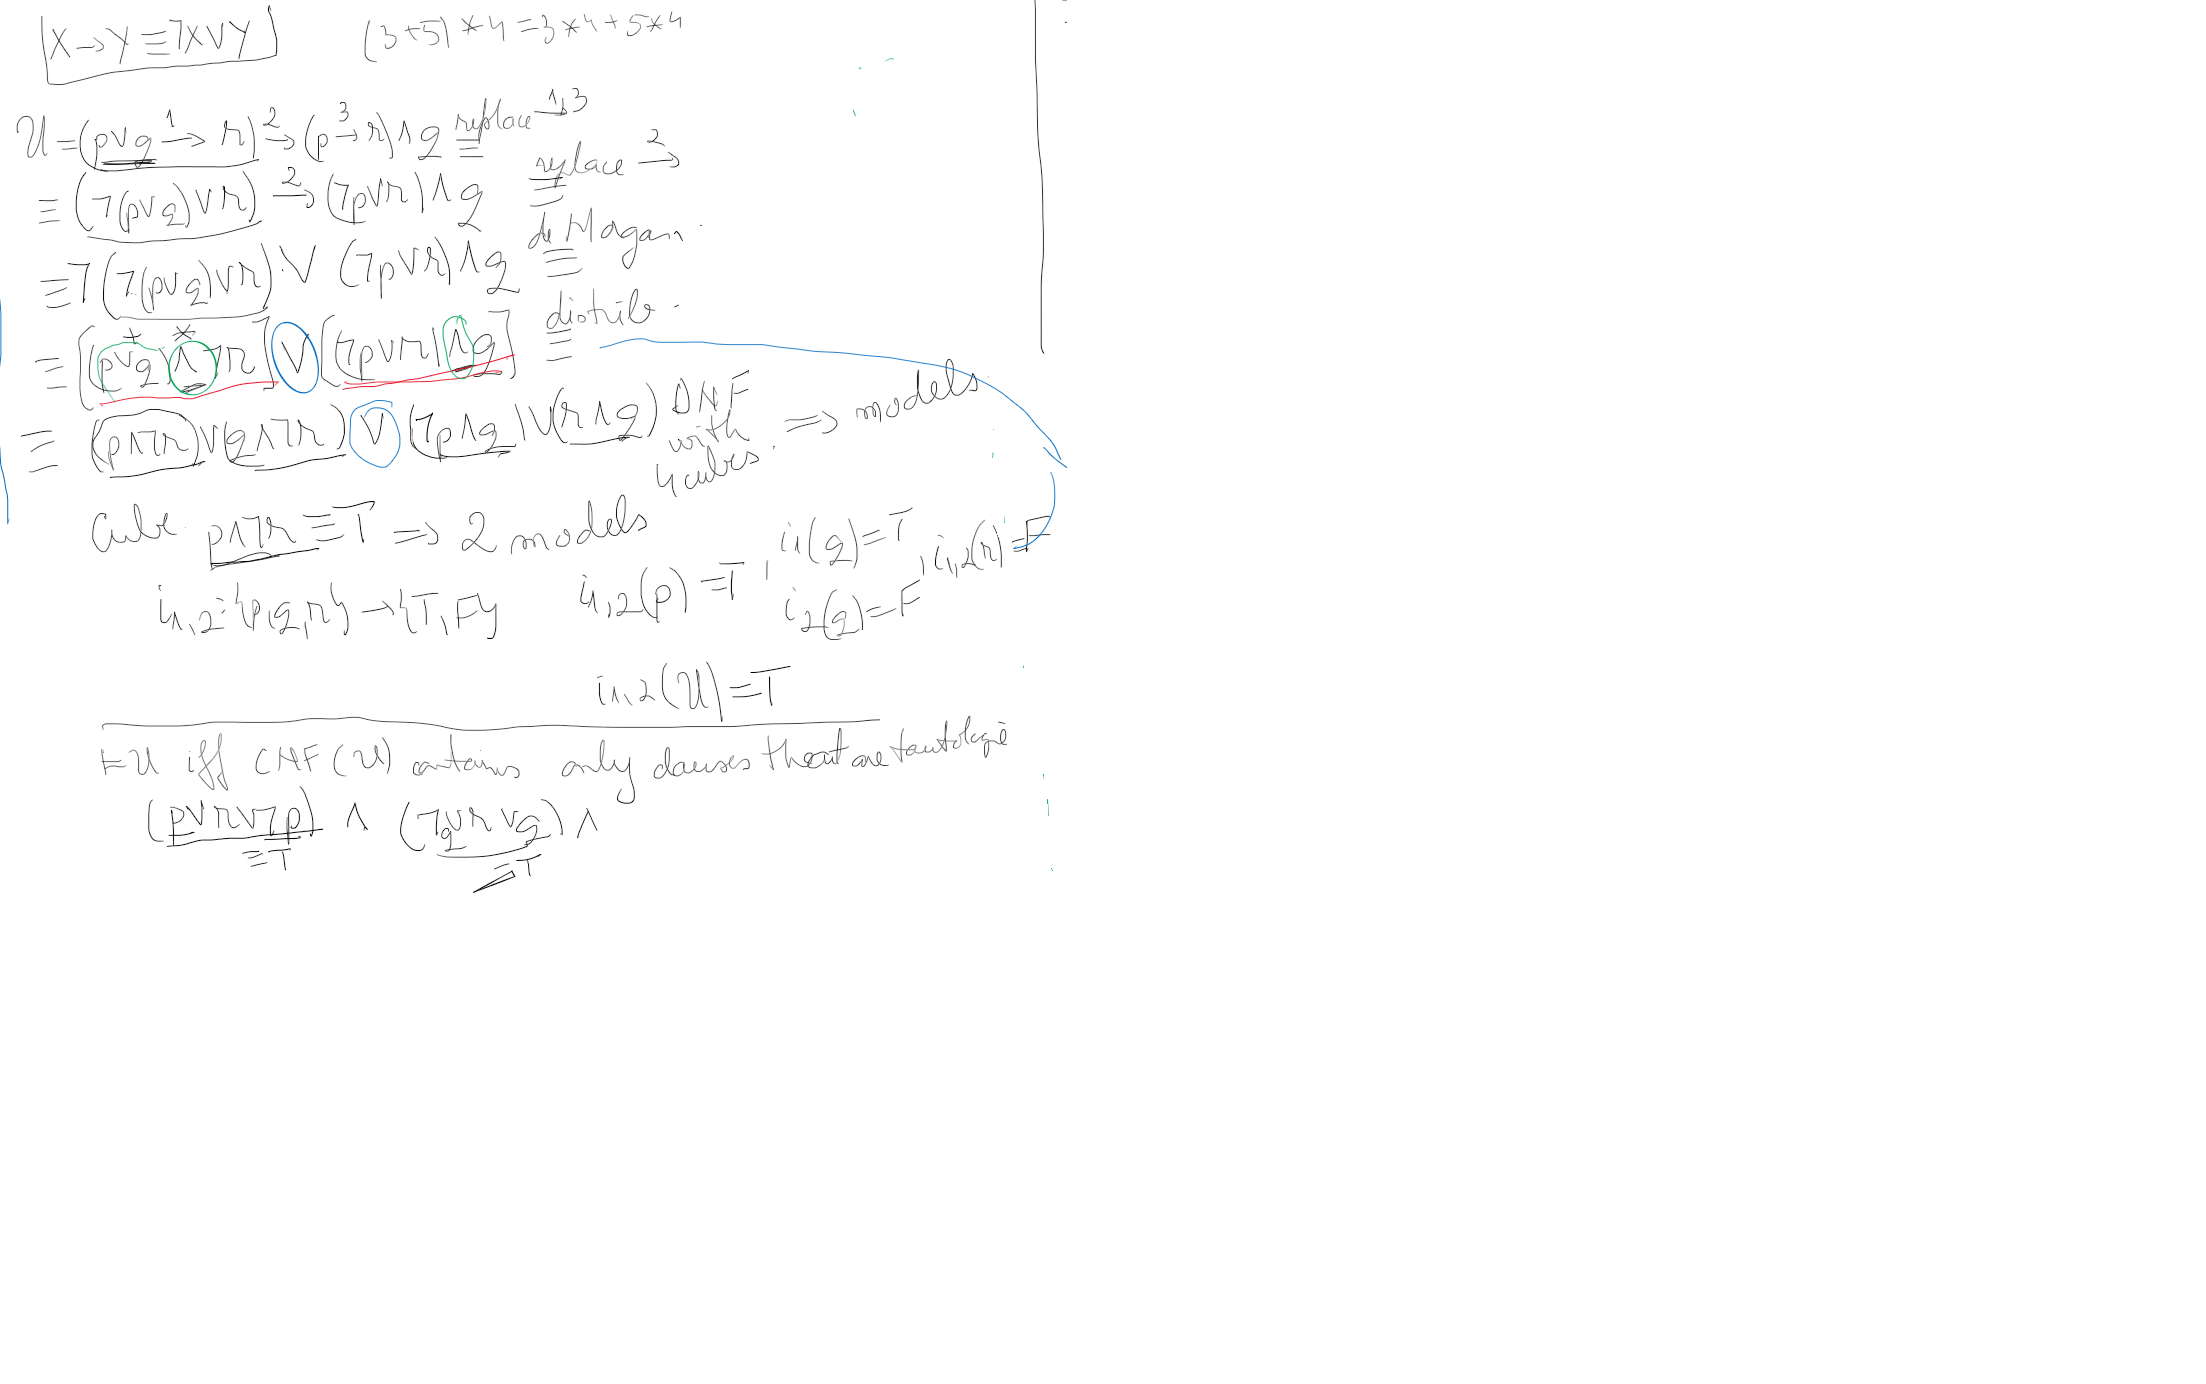 X → Y ≡ ¬X ∨ Y (3+5) * 4 = 3*4 + 5*4
U = (p∨q →¹ r) →² (p →³ r) ∧ q ≡ replace →1,3
≡ (¬(p∨q)∨r) →² (¬p∨r) ∧ q ≡ replace →²
≡ ¬(¬(p∨q)∨r) ∨ (¬p∨r) ∧ q ≡ de Morgan
≡ [(p∨q) ∧ ¬r] ∨ [(¬p∨r) ∧ q] ≡ distrib.
+ *
≡ (p∧¬r)∨(q∧¬r) ∨ (¬p∧q)∨(r∧q) DNF with 4 cubes. ⇒ models
Cube p∧¬r ≡ T ⇒ 2 models
i1,2: {p,q,r} → {T,F} i1,2(p) = T, i1(q) = T, i1,2(r) = F
i2(q) = F
i1,2(U) = T
⊨U iff CNF(U) contains only clauses that are tautologie
(p∨r∨¬p) ∧ (¬q∨r∨q) ∧
≡T ≡T